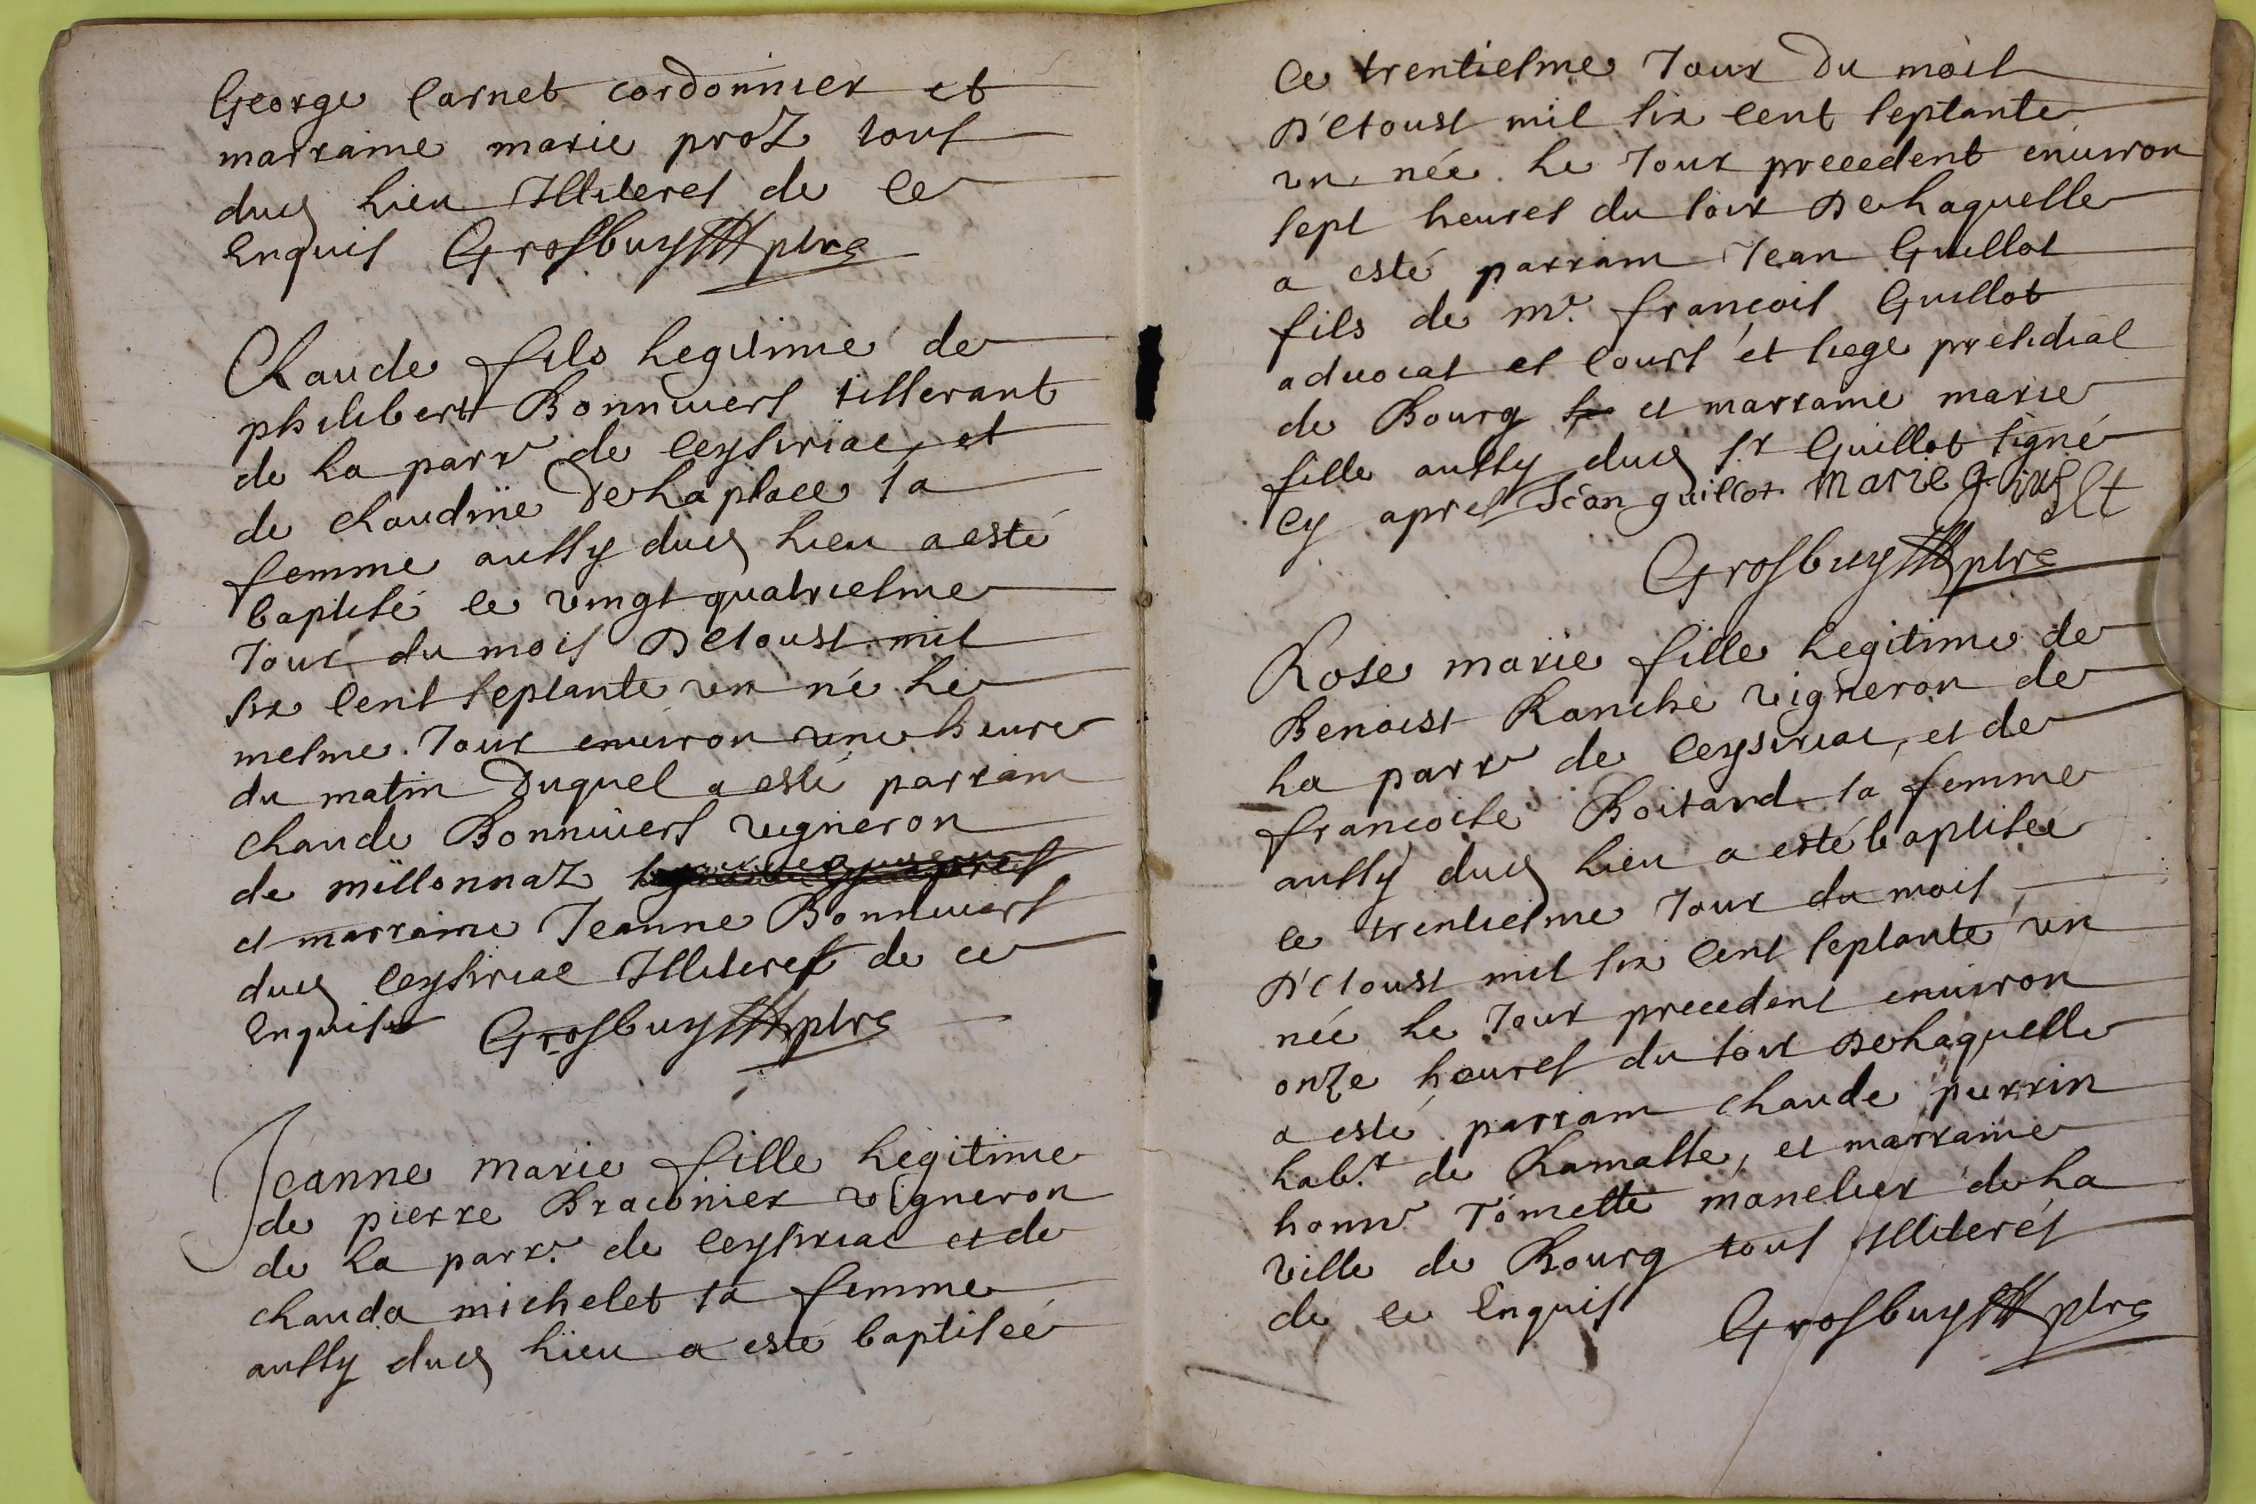 George Carnet cordonnier et
marraine marie proz tous
dud lieu Illiteres de ce
Enquis Grosbuyst ptre
Claude fils legitime de
philibert Bonnivers tisserant
de la parr de Ceysiriac et
de claudine De la place sa
femme aussy dud lieu a esté
baptisé ce vingt quatriesme
Jour du mois D'Aoust mil
six cent septante un né le
mesme Jour environ une heure
du matin Duquel a esté parrain
claude Bonnivers vigneron
de millonnaz
et marraine Jeanne Bonnivers
dud Ceysiriac Illiteres de ce
Enquis Grosbuyst ptre
Jeanne marie fille legitime
de pierre Braconier vigneron
de la parr. de Ceysiriac et de
clauda michelet sa femme
aussy dud lieu a esté baptisée
Ce trentiesme Jour Du mois
D'Aoust mil six cent septante
un née le Jour precedent environ
sept heures du soir De laquelle
a esté parrain Jean Guillot
fils de mr. françois Guillot
advocat es Cours et siege presidial
de Bourg et marraine marie
fille aussy dud sr Guillot signé
cy apres Jean guillot Marie
Grosbuyst ptre
Rose marie fille legitime de
Benoist Ranche vigneron de
la parr de Ceysiriac, et de
francoise Boitard sa femme
aussy dud lieu a esté baptisée
ce trentiesme Jour du mois
D'Aoust mil six cent septante un
née le Jour precedent environ
onze heures du soir De laquelle
a esté parrain claude perrin
habt. de Ramasse, et marraine
honnr Tomette manelier de la
ville de Bourg tous Illiterés
de ce Enquis Grosbuyst ptre